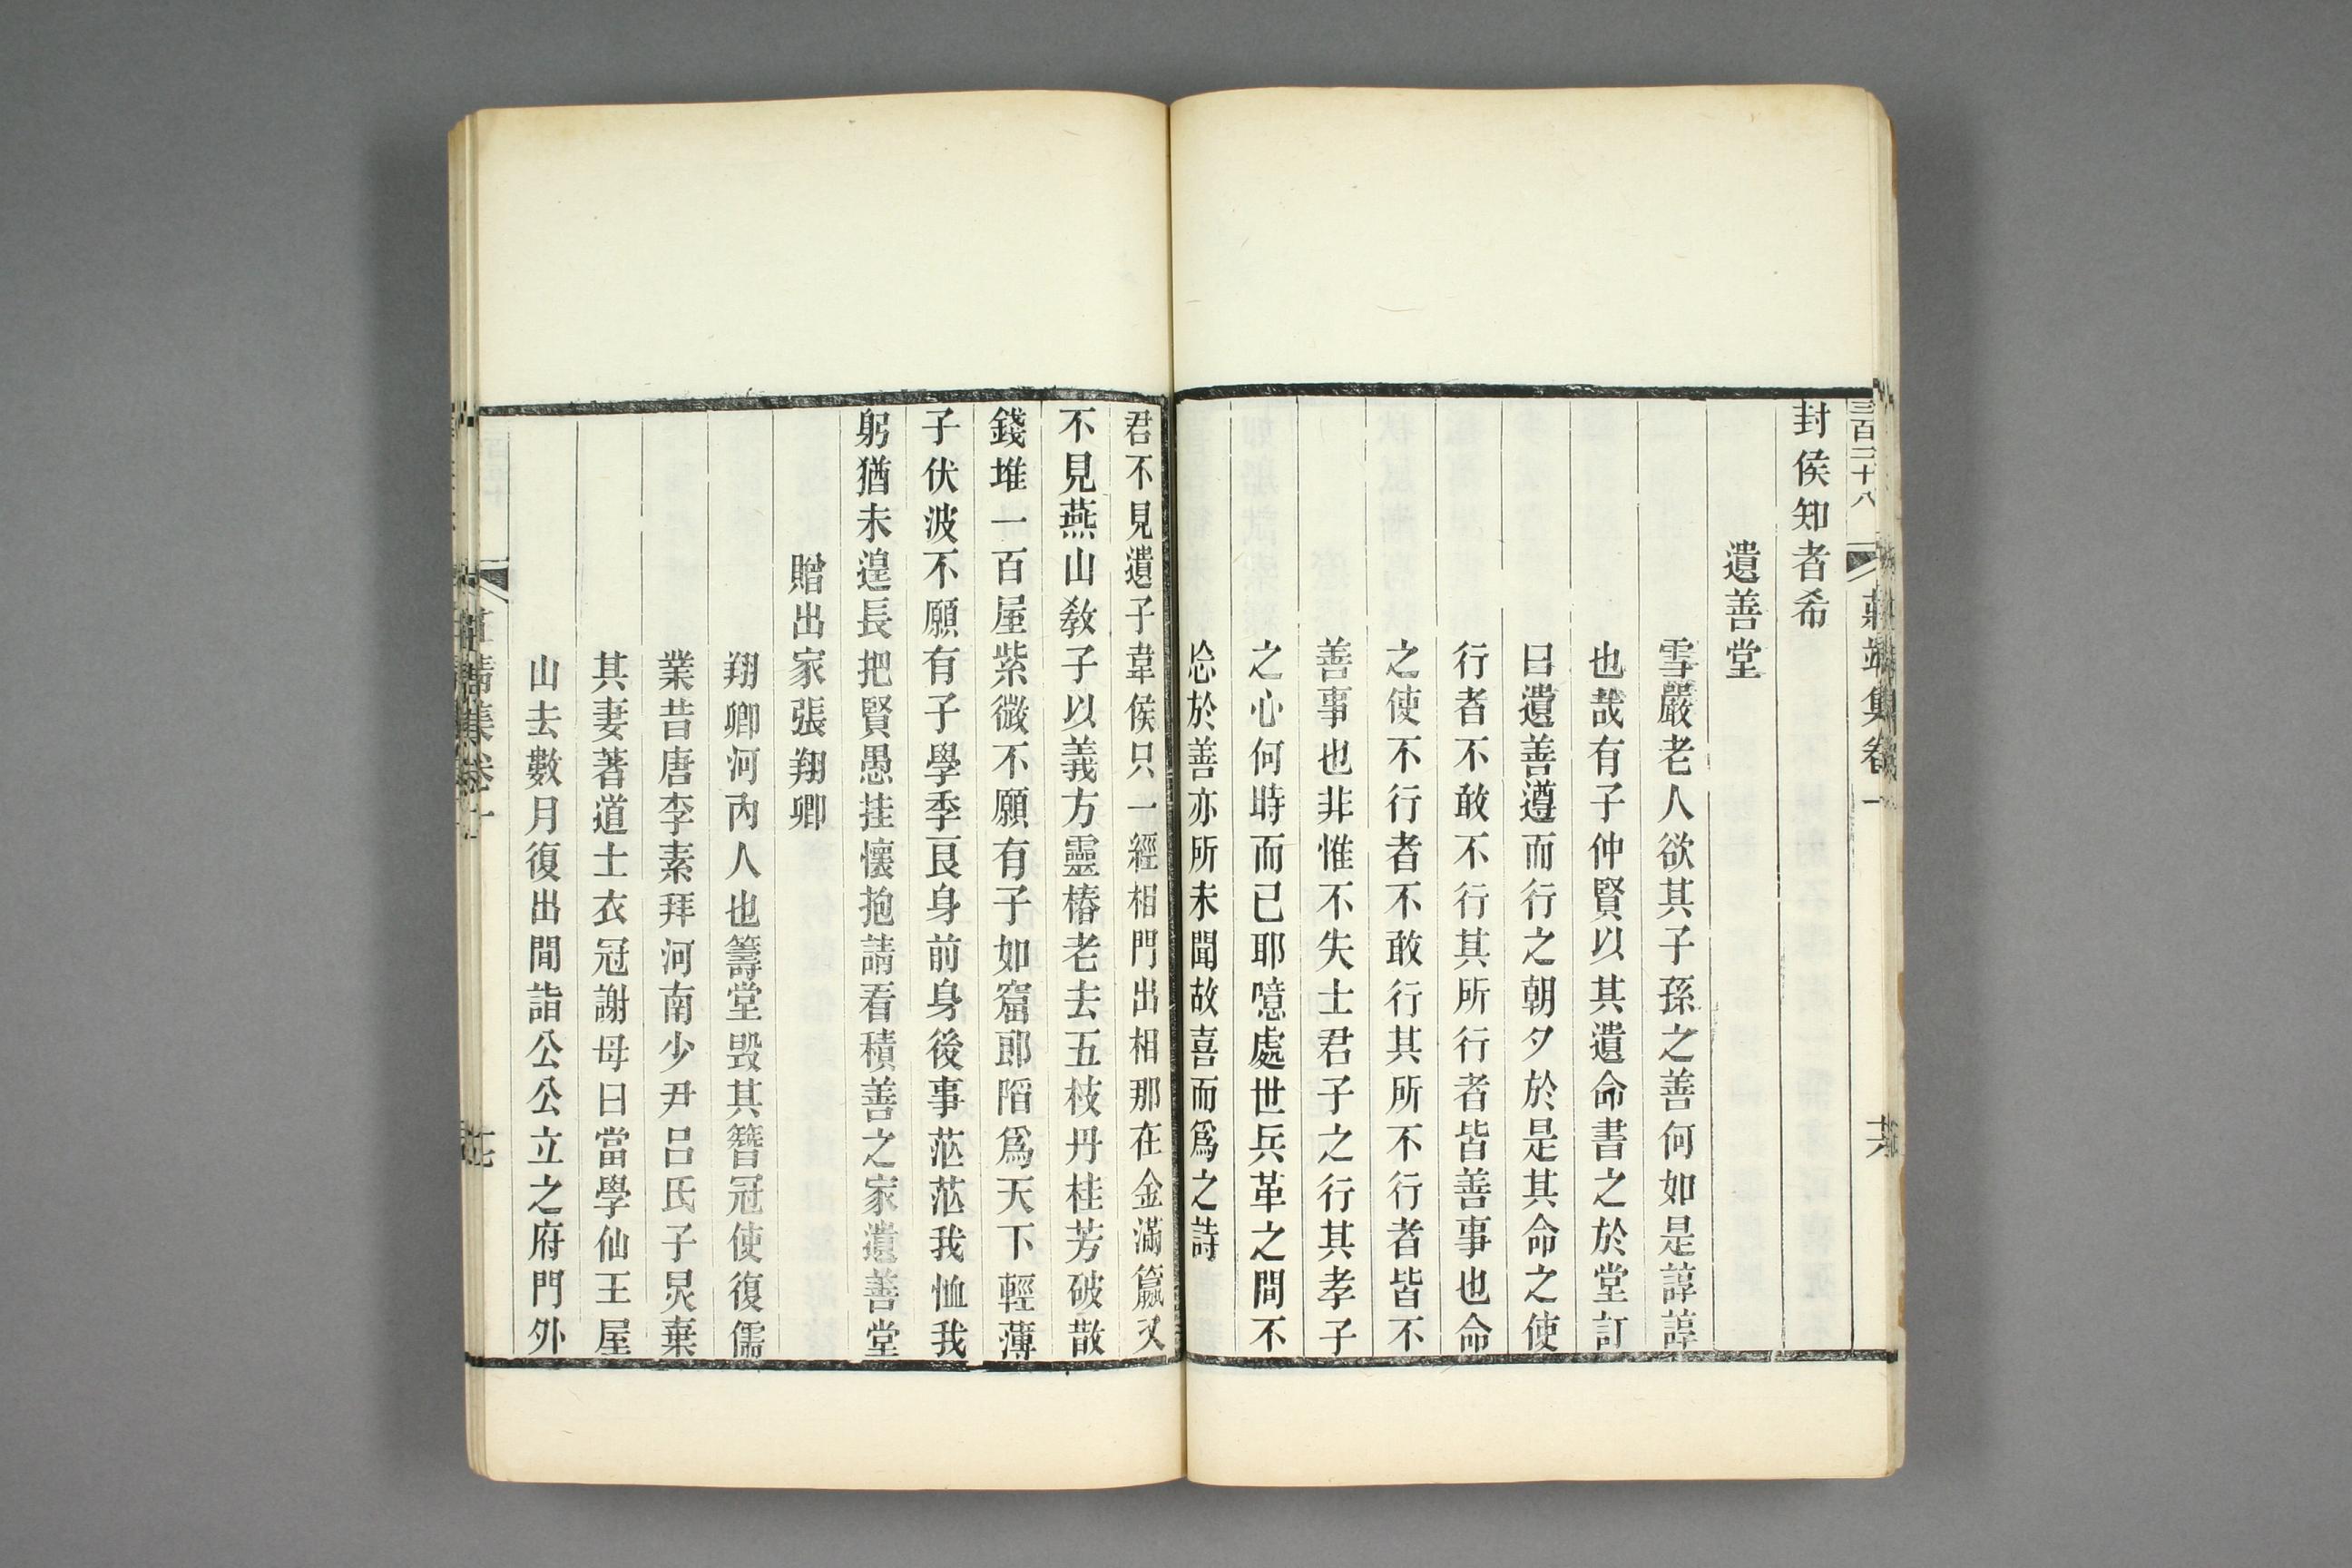 三百二十八
封侯知者希
遺善堂
雪嚴老人欲其子孫之善何如是諄諄
也哉有子仲賢以其遺命書之於堂訂
曰遺善遵而行之朝夕於是其命之使
行者不敢不行其所行者皆善事也命
之使不行者不敢行其所不行者皆不
善事也非惟不失士君子之行其孝子
之心何時而已耶噫處世兵革之間不
忘於善亦所未聞故喜而爲之詩
君不見遺子韋侯只一經相門出相那在金滿籯又
不見燕山敎子以義方靈椿老去五枝丹桂芳破散
錢堆一百屋紫微不願有子如窟郎陷爲天下輕薄
子伏波不願有子學季良身前身後事茫茫我恤我
躬猶未遑長把賢愚挂懷抱請看積善之家遺善堂
贈出家張翔卿
翔卿河內人也籌堂毀其簪冠使復儒
業昔唐李素拜河南少尹呂氏子炅棄
其妻著道士衣冠謝母曰當學仙王屋
山去數月復出間詣公公立之府門外